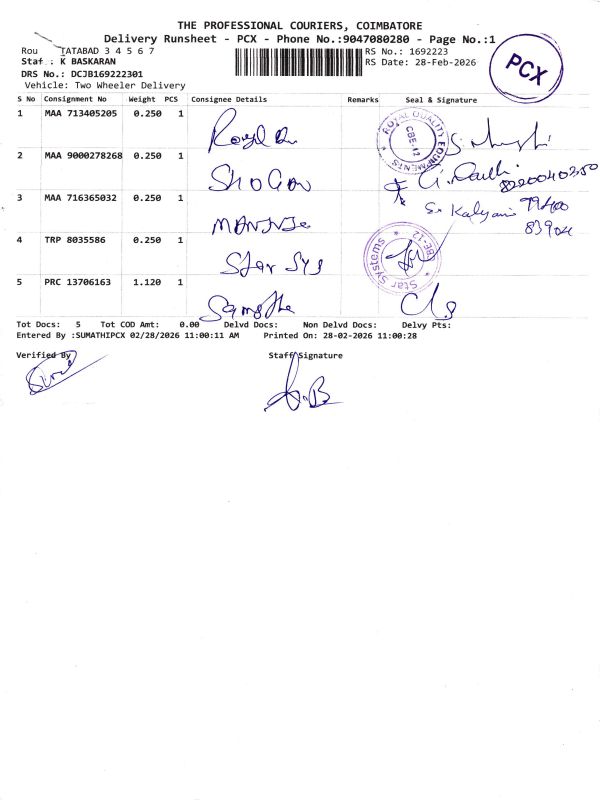 THE PROFESSIONAL COURIERS, COIMBATORE
Delivery Runsheet - PCX - Phone No.:9047080280 - Page No.:1
Rou TATABAD 3 4 5 6 7
RS No.: 1692223
Staf : K BASKARAN
RS Date: 28-Feb-2026
PCX
DRS No.: DCJB169222301
Vehicle: Two Wheeler Delivery
S No Consignment No Weight PCS Consignee Details Remarks Seal & Signature
1 MAA 713405205 0.250 1 Royal
ROYAL QUALITY EQUIPMENTS CBE-12
2 MAA 9000278268 0.250 1 SHOGAN
8220040350
3 MAA 716365032 0.250 1
S. Kalyani 79400
83904
4 TRP 8035586 0.250 1 Star Sys
Star Systems CBE-12
5 PRC 13706163 1.120 1
Tot Docs: 5 Tot COD Amt: 0.00 Delvd Docs: Non Delvd Docs: Delvy Pts:
Entered By :SUMATHIPCX 02/28/2026 11:00:11 AM Printed On: 28-02-2026 11:00:28
Verified By Staff Signature